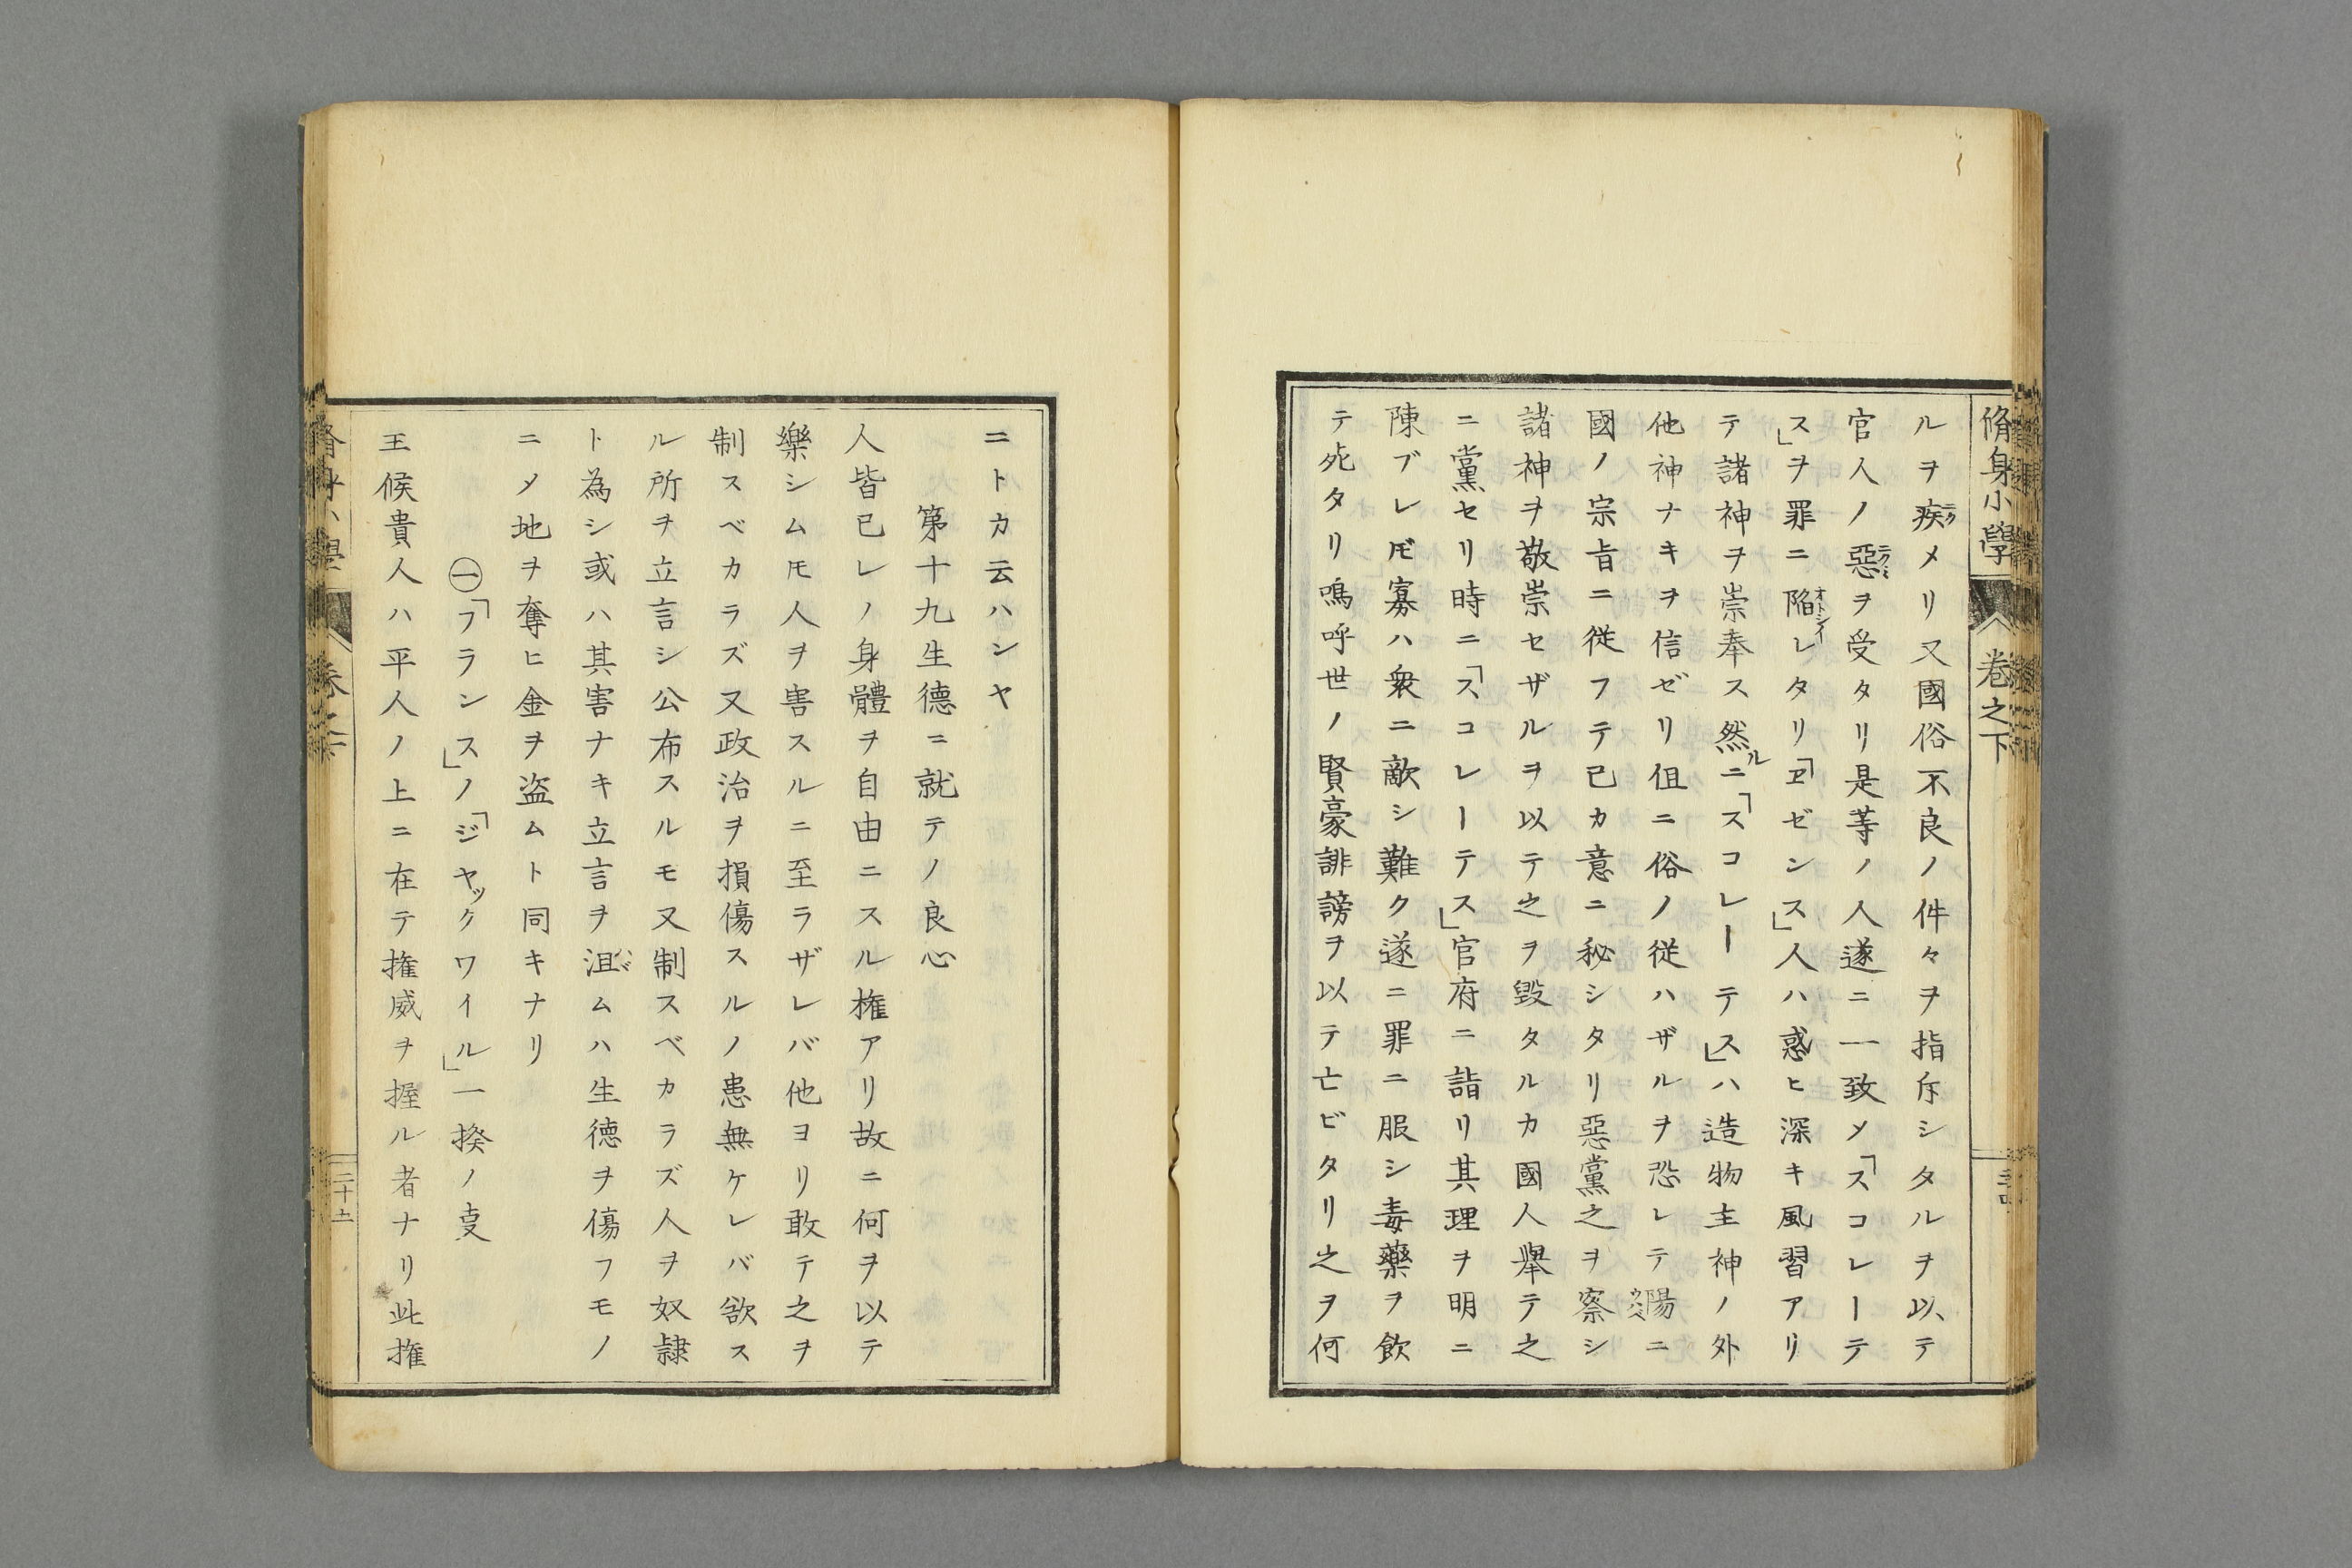 脩身小學 卷之下
ルヲ疾メリ又國俗不良ノ件々ヲ指斥シタルヲ以テ
官人ノ惡ヲ受タリ是等ノ人遂ニ一致メ「スコレーテ
ス」ヲ罪ニ陷レタリ「ヱゼンス」人ハ惑ヒ深キ風習アリ
テ諸神ヲ崇奉ス然ルニ「スコレーテス」ハ造物主神ノ外
他神ナキヲ信ゼリ伹ニ俗ノ従ハザルヲ恐レテ陽ニ
國ノ宗旨ニ従フテ已カ意ニ秘シタリ惡黨之ヲ察シ
諸神ヲ敬崇セザルヲ以テ之ヲ毀タルカ國人擧テ之
ニ黨セリ時ニ「スコレーテス」官府ニ詣リ其理ヲ明ニ
陳ブレ𪜈寡ハ衆ニ敵シ難ク遂ニ罪ニ服シ毒藥ヲ飲
テ死タリ嗚呼世ノ賢豪誹謗ヲ以テ亡ビタリ之ヲ何
ニトカ云ハンヤ
第十九生德ニ就テノ良心
人皆已レノ身體ヲ自由ニスル権アリ故ニ何ヲ以テ
樂シムモ人ヲ害スルニ至ラザレバ他ヨリ敢テ之ヲ
制スベカラズ又政治ヲ損傷スルノ患無ケレバ欲ス
ル所ヲ立言シ公布スルモ又制スベカラズ人ヲ奴隷
ト為シ或ハ其害ナキ立言ヲ沮ムハ生德ヲ傷フモノ
ニメ地ヲ奪ヒ金ヲ盗ムト同キナリ
㊀「フランス」ノ「ジヤックワイル」一揆ノ叓
王候貴人ハ平人ノ上ニ在テ権威ヲ握ル者ナリ此権
二十五